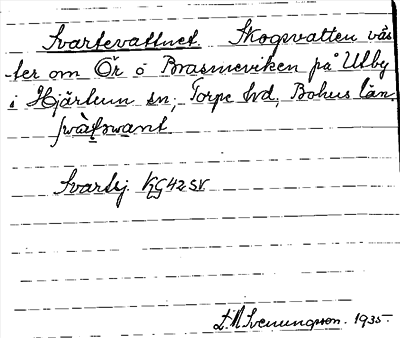 Svartevattnet. Skogsvatten väs
-ter om Ör o Brasmeviken på Utby
i Hjärtum sn; Torpe hd; Bohus län.
Svartsj. KG 42 SV.
Svenungsson. 1935.